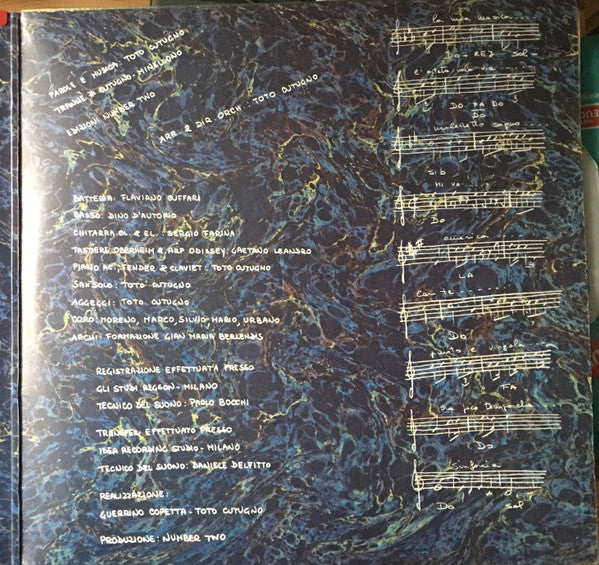 PAROLE E MUSICA: TOTO CUTUGNO.
TRANNE 2 CUTUGNO-MINELLONO
EDIZIONI NUMBER TWO
ARR. E DIR. ORCH.- TOTO CUTUGNO
BATTERIA: FLAVIANO CUFFARI
BASSO: DINO D'AUTORIO
CHITARRA CL. & EL.: SERGIO FARINA
TASTIERE OBERHEIM & ARP ODISSEY: GAETANO LEANDRO
PIANO AC. FENDER & CLAVIET: TOTO CUTUGNO
SAX SOLO: TOTO CUTUGNO
AGGEGGI: TOTO CUTUGNO
CORO: MORENO, MARCO, SILVIO-MARIO, URBANO
ARCHI: FORMAZIONE GIAN MARIA BERLENDIS
REGISTRAZIONE EFFETTUATA PRESSO
GLI STUDI REGSON-MILANO
TECNICO DEL SUONO: PAOLO BOCCHI
TRANSFER EFFETTUATO PRESSO
IDEA RECORDING STUDIO-MILANO
TECNICO DEL SUONO: DANIELE DELFITTO
REALIZZAZIONE:
GUERRINO COPETTA-TOTO CUTUGNO
PRODUZIONE: NUMBER TWO
la mia musica
DO- RE7 Sol
DO FA DO
DO
maledetto sogno
SIb
MI VA
LA
Con te
DO
punto e virgola
FA
DO
Sinfonia
DO Sol